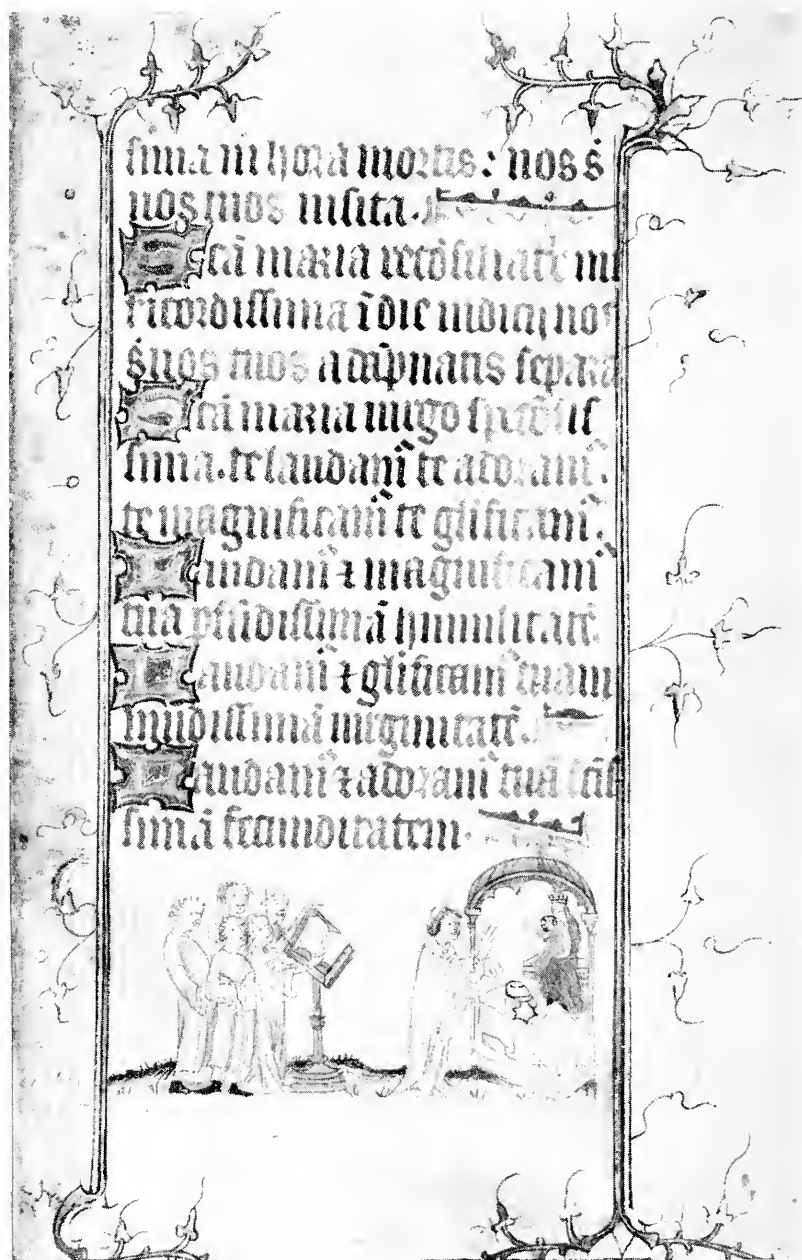 sima in hora mortis: nos s̄
uos tuos visita.
Scā maria recōsiliatē mi
ricordissima ī die iudicij nos
s̄uos tuos a dāpnatis separa
Scā maria uirgo
sima. te laudam᷒ te adoram᷒.
te magnificam᷒ te glificam᷒.
Laudam᷒ ⁊ magnificam᷒
tuā pfūdissimā humilitatē.
Laudam᷒ ⁊ glificam᷒ tuam
mūdissimā uirginitatē.
Laudam᷒ ⁊ adoram᷒ tuā
simā fecunditatem.